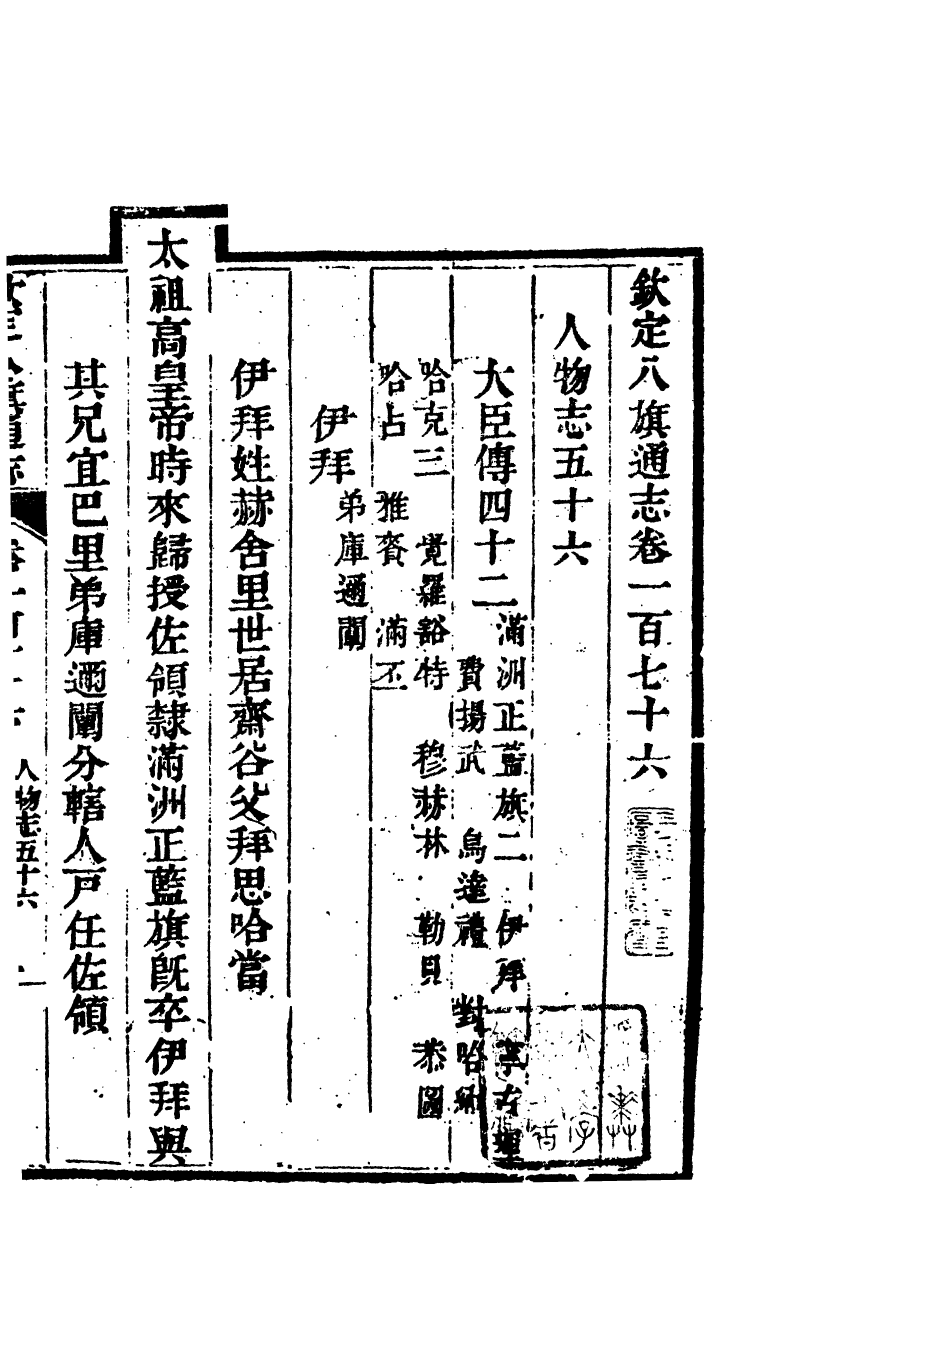 欽定八旗通志卷一百七十六
人物志五十六
大臣傳四十二
滿洲正藍旗二 伊拜 寧古里
費揚武 烏達禮 對哈納
哈克三 覺羅豁特 穆赫林 勒貝 恭圖
哈占 雅賚 滿丕
伊拜 弟庫邇闡
伊拜姓赫舍里世居齋谷父拜思哈當
太祖高皇帝時來歸授佐領隸滿洲正藍旗既卒伊拜與
其兄宜巴里弟庫邇闡分轄人戸任佐領
人物志五十六
一